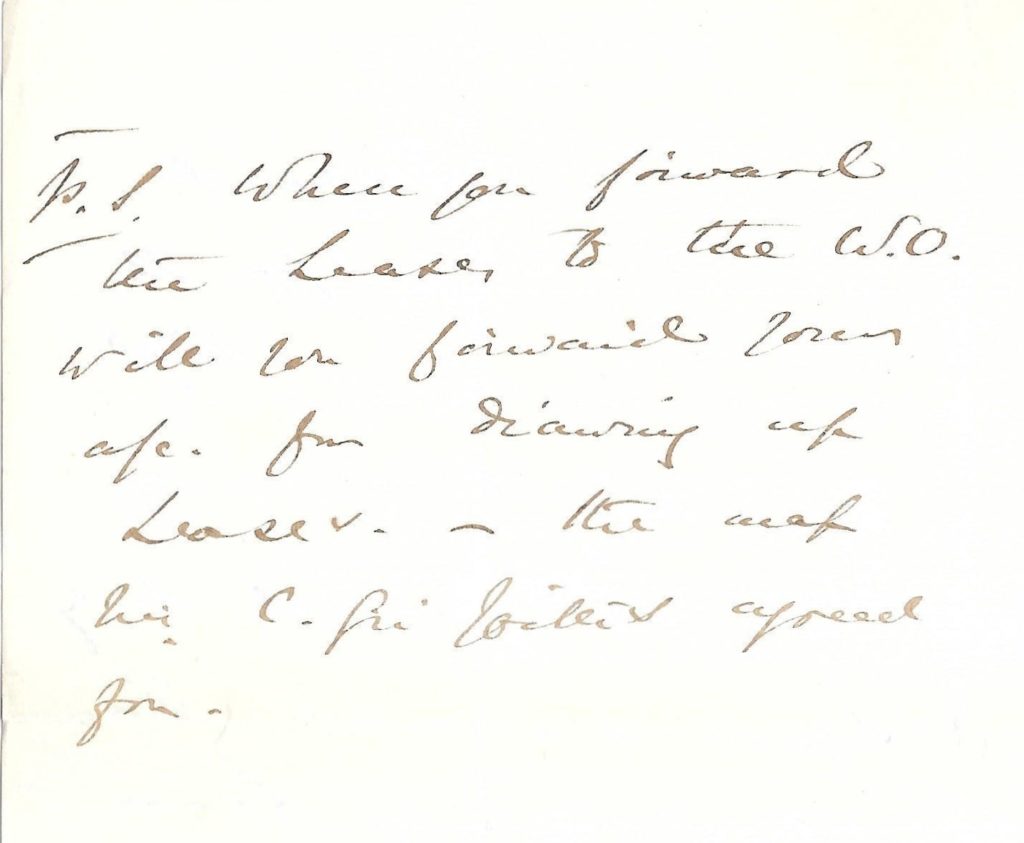 P.S. When you forward
the Leases to the W.O.
will you forward your
a/c. for drawing up
Leases. – the map
Mr. C. agreed
for.